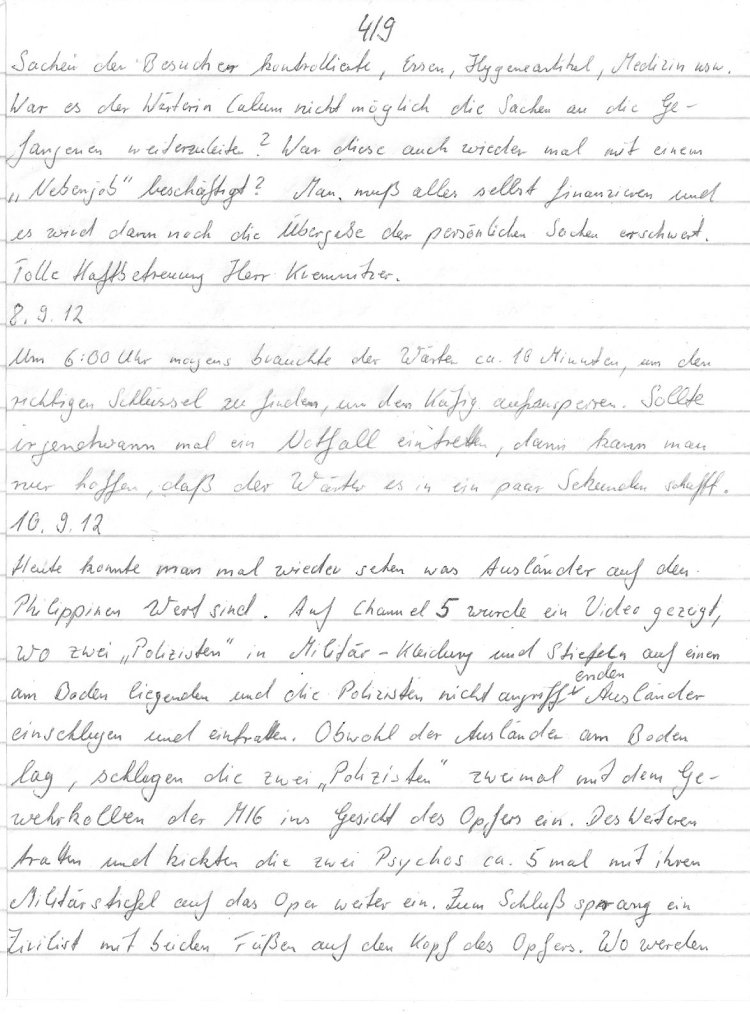 419
Sachen der Besucher kontrollierte, Essen, Hygeneartikel, Medizin usw.
War es der Wärterin Calum nicht möglich die Sachen an die Ge-
fangenen weiterzuleiten? War diese auch wieder mal mit einem
„Nebenjob" beschäftigt? Man muß alles selbst finanzieren und
es wird dann noch die Übergabe der persönlichen Sachen erschwert.
Tolle Haftbetreuung Herr Kremnitzer.
8.9.12
Um 6:00 Uhr morgens brauchte der Wärter ca. 10 Minuten, um den
richtigen Schlüssel zu finden, um den Käfig aufzusperren. Sollte
irgendwann mal ein Notfall eintretten, dann kann man
nur hoffen, daß der Wärter es in ein paar Sekunden schafft.
10.9.12
Heute konnte man mal wieder sehen was Ausländer auf den
Philippinen Wert sind. Auf Channel 5 wurde ein Video gezeigt,
wo zwei „Polizisten" in Militär-Kleidung und Stiefeln auf einen
am Boden liegenden und die Polizisten nicht angriffenden Ausländer
einschlugen und eintratten. Obwohl der Ausländer am Boden
lag, schlugen die zwei „Polizisten" zweimal mit dem Ge-
wehrkolben der M16 ins Gesicht des Opfers ein. Des Weiteren
tratten und kickten die zwei Psychos ca. 5 mal mit ihren
Militärstiefel auf das Oper weiter ein. Zum Schluß sprang ein
Zivilist mit beiden Füßen auf den Kopf des Opfers. Wo werden